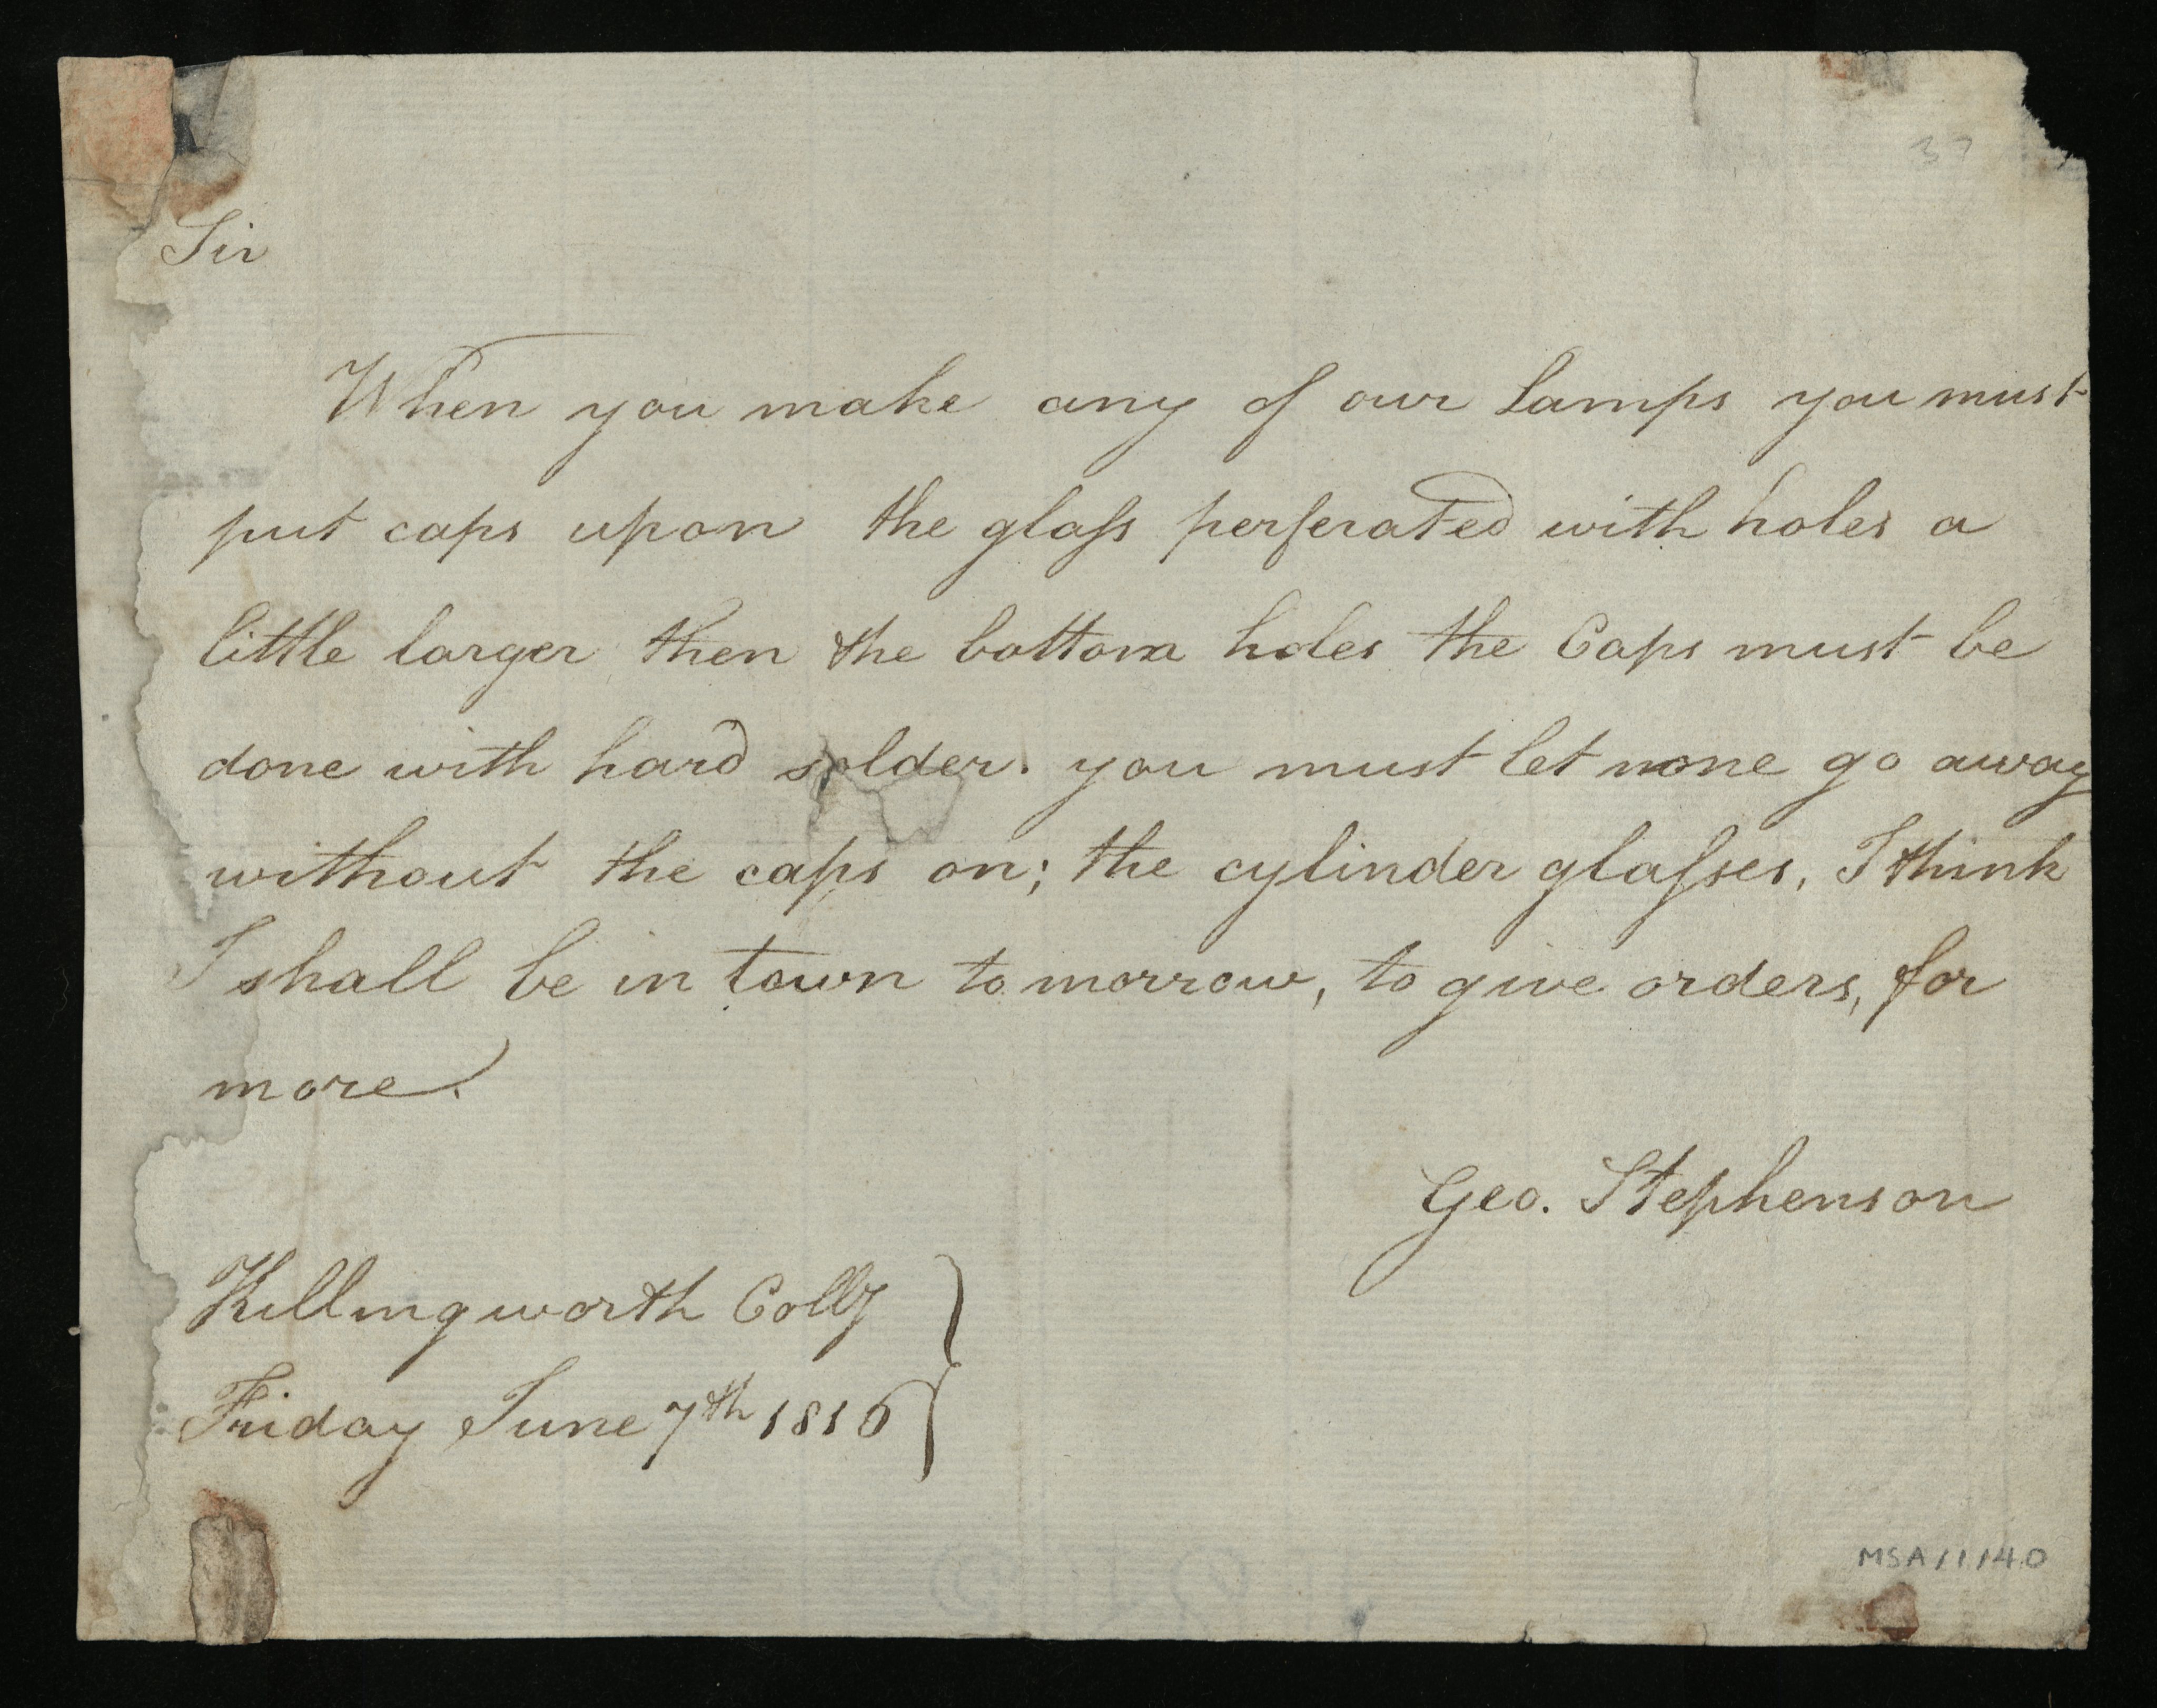 37
Sir
When you make any of our Lamps you must
put caps upon the glaſs perferated with holes a
little larger then the bottom holes the Caps must be
done with hard solder. you must let none go away
without the caps on; the cylinder glaſses, I think
I shall be in town to morrow, to give orders, for
more.
Geo. Stephenson
Killingworth Colly
Friday June 7th 1816
MSA/1/40